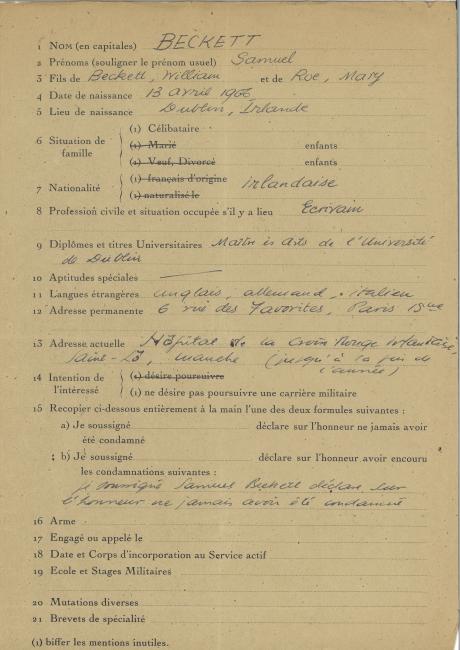 1 NOM (en capitales) BECKETT
2 Prénoms (souligner le prénom usuel) Samuel
3 Fils de Beckett, William et de Roe, Mary
4 Date de naissance 13 avril 1906
5 Lieu de naissance Dublin, Irlande
6 Situation de famille
(1) Célibataire
(1) Marié enfants
(1) Veuf, Divorcé enfants
7 Nationalité
(1) français d'origine Irlandaise
(1) naturalisé le
8 Profession civile et situation occupée s'il y a lieu Ecrivain
9 Diplômes et titres Universitaires Maître ès Arts de l'Université
de Dublin
10 Aptitudes spéciales
11 Langues étrangères anglais, allemand, italien
12 Adresse permanente 6 rue des Favorites, Paris 15ème
13 Adresse actuelle Hôpital de la Croix Rouge Irlandaise,
Saint-Lô, Manche (jusqu'à la fin de
l'année)
14 Intention de l'intéressé
(1) désire poursuivre
(1) ne désire pas poursuivre une carrière militaire
15 Recopier ci-dessous entièrement à la main l'une des deux formules suivantes :
a) Je soussigné déclare sur l'honneur ne jamais avoir
été condamné
b) Je soussigné déclare sur l'honneur avoir encouru
les condamnations suivantes :
je soussigné Samuel Beckett déclare sur
l'honneur ne jamais avoir été condamné
16 Arme
17 Engagé ou appelé le
18 Date et Corps d'incorporation au Service actif
19 Ecole et Stages Militaires
20 Mutations diverses
21 Brevets de spécialité
(1) biffer les mentions inutiles.